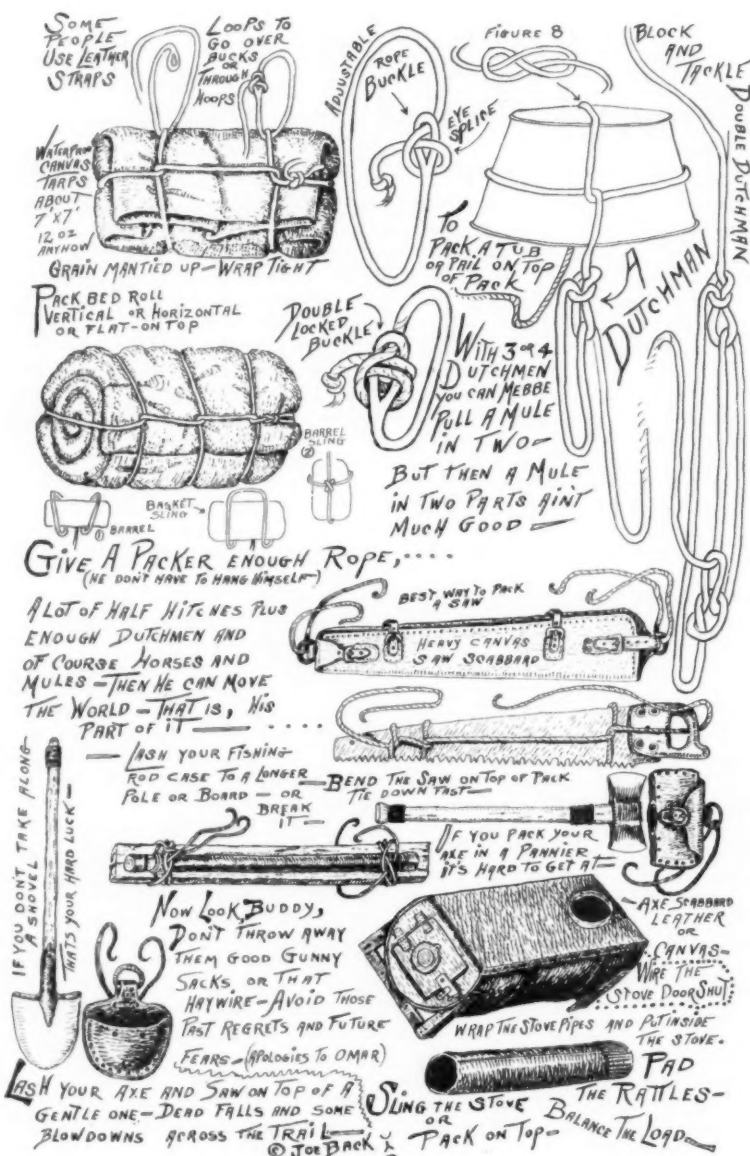 SOME
PEOPLE
USE LEATHER
STRAPS
LOOPS TO
GO OVER
BUCKS
OR
THROUGH
HOOPS
WATERPROOF
CANVAS
TARPS
ABOUT
7'X7'
12 OZ
ANYHOW
GRAIN MANTIED UP—WRAP TIGHT
ADJUSTABLE
ROPE
BUCKLE
EYE
SPLICE
FIGURE 8
BLOCK
AND
TACKLE
DOUBLE DUTCHMAN
TO
PACK A TUB
OR PAIL ON TOP
OF PACK
A
DUTCHMAN
PACK BED ROLL
VERTICAL OR HORIZONTAL
OR FLAT-ON TOP
DOUBLE
LOCKED
BUCKLE
WITH 3 OR 4
DUTCHMEN
YOU CAN MEBBE
PULL A MULE
IN TWO—
BUT THEN A MULE
IN TWO PARTS AIN'T
MUCH GOOD—
BARREL
SLING
②
① BARREL
BASKET
SLING
GIVE A PACKER ENOUGH ROPE, ....
(HE DON'T HAVE TO HANG HIMSELF—)
A LOT OF HALF HITCHES PLUS
ENOUGH DUTCHMEN AND
OF COURSE HORSES AND
MULES—THEN HE CAN MOVE
THE WORLD—THAT IS, HIS
PART OF IT— .....
BEST WAY TO PACK
A SAW
HEAVY CANVAS
SAW SCABBARD
— LASH YOUR FISHING
ROD CASE TO A LONGER
POLE OR BOARD—OR
BREAK
IT—
—BEND THE SAW ON TOP OF PACK
TIE DOWN FAST—
IF YOU DON'T TAKE ALONG
A SHOVEL
THATS YOUR HARD LUCK—
IF YOU PACK YOUR
AXE IN A PANNIER
IT'S HARD TO GET AT—
—AXE SCABBARD
LEATHER
OR
CANVAS—
NOW LOOK, BUDDY,
DON'T THROW AWAY
THEM GOOD GUNNY
SACKS, OR THAT
HAYWIRE—AVOID THOSE
PAST REGRETS AND FUTURE
FEARS—(APOLOGIES TO OMAR)
WIRE THE
STOVE DOOR SHUT
WRAP THE STOVE PIPES AND PUT INSIDE
THE STOVE.
LASH YOUR AXE AND SAW ON TOP OF A
GENTLE ONE—DEAD FALLS AND SOME
BLOWDOWNS ACROSS THE TRAIL—
SLING THE STOVE
OR
PACK ON TOP—
PAD
THE RATTLES—
BALANCE THE LOAD—
© JOE BACK